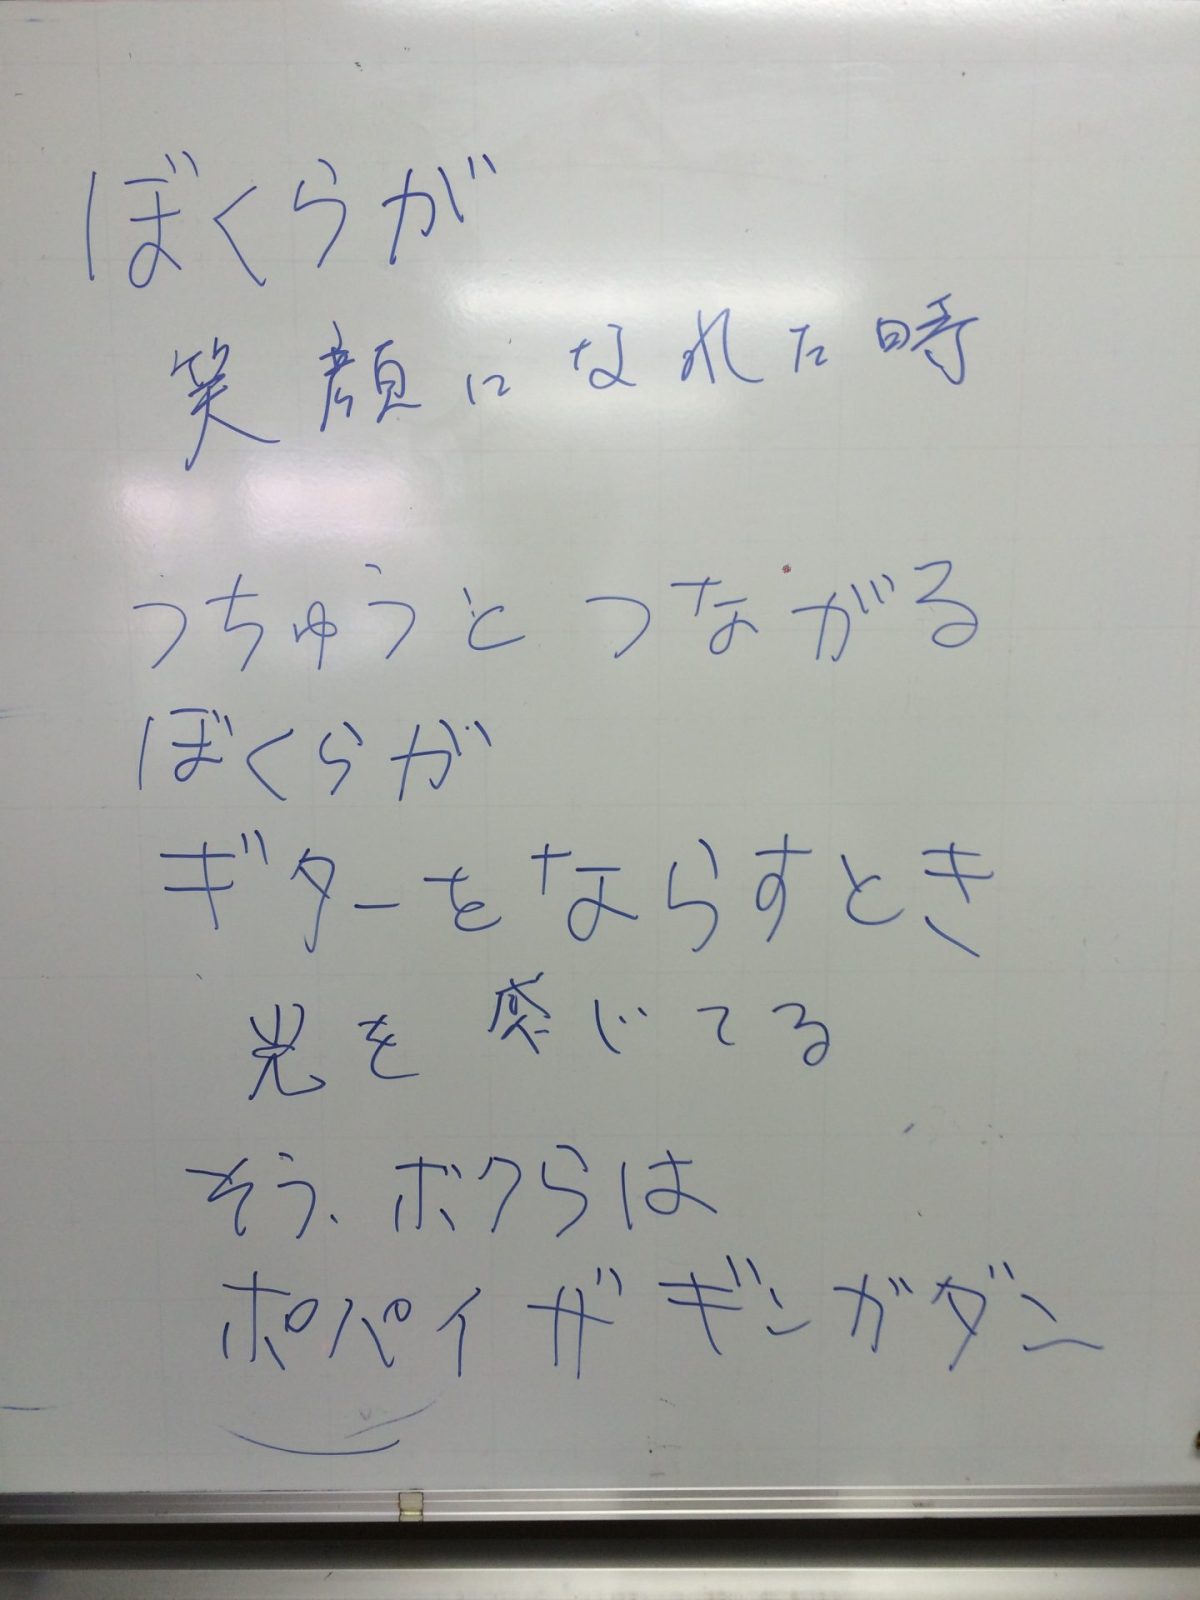 ぼくらが
笑顔になれた時
うちゅうとつながる
ぼくらが
ギターをならすとき
光を感じてる
そう、ボクらは
ポパイザギンガダン